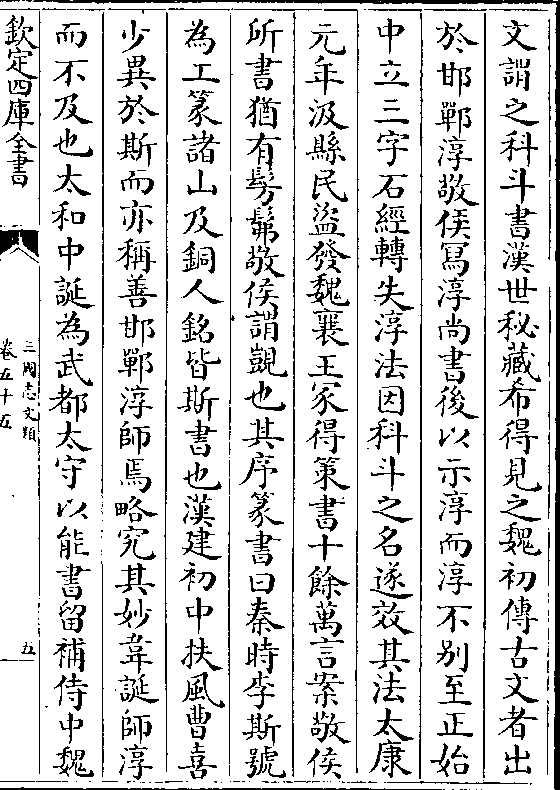 文謂之科斗書漢世秘藏希得見之魏初傳古文者出
於邯鄲淳敬侯冩淳尚書後以示淳而淳不别至正始
中立三字石經轉失淳法因科斗之名遂效其法太康
元年汲縣民盜發魏襄王冢得策書十餘萬言案敬侯
所書猶有髣髴敬侯謂覬也其序篆書曰秦時李斯號
為工篆諸山及銅人銘皆斯書也漢建初中扶風曹喜
少異於斯而亦稱善邯鄲淳師焉略究其妙韋誕師淳
而不及也太和中誕為武都太守以能書留補侍中魏
欽定四庫全書
三國志文類
卷五十五
五